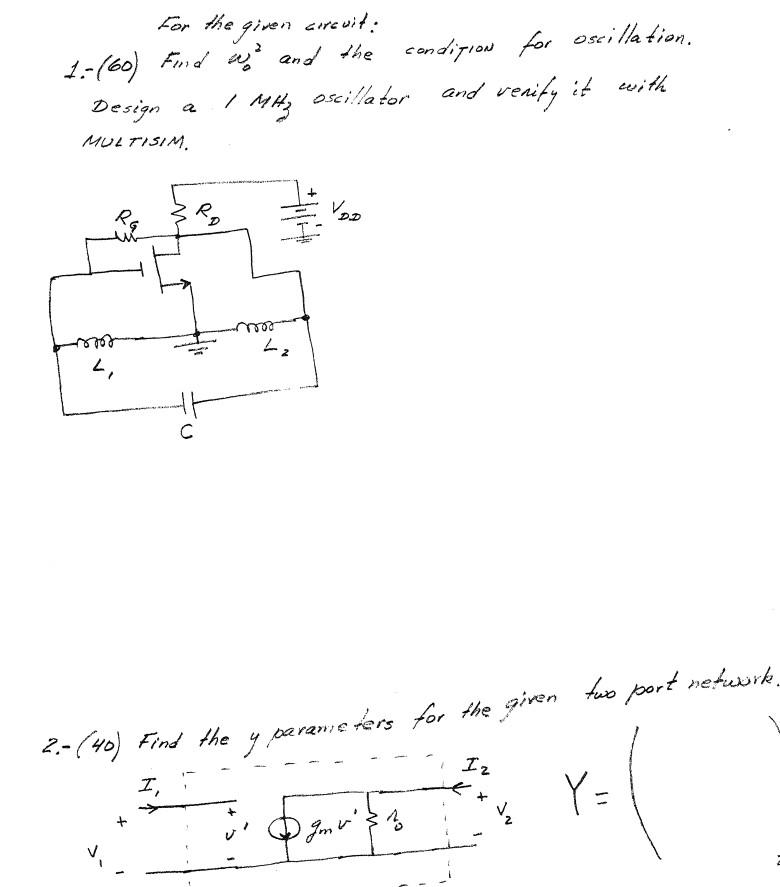 For the given circuit:
1.-(60) Find ω₀² and the condition for oscillation.
Design a 1 MHz oscillator and verify it with
MULTISIM.
+
R_G
R_D
V_DD
-
L₁
L₂
C
2.-(40) Find the y parameters for the given two port network.
I₁
I₂
+
+
+
Y = (
v'
g_m v'
r₀
V₂
V₁
-
-
-